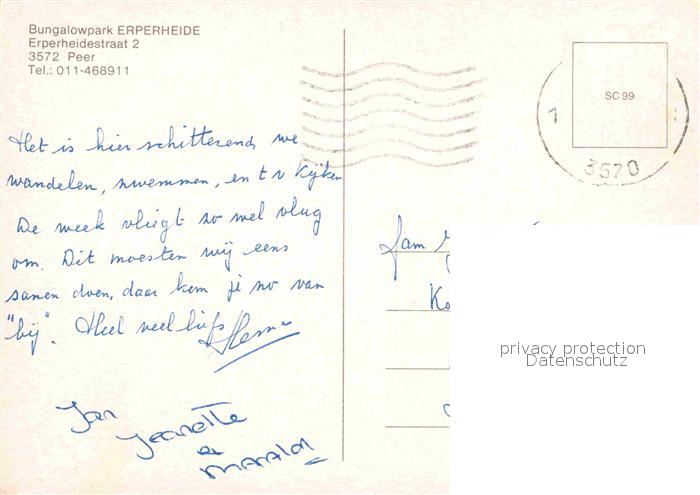 Bungalowpark ERPERHEIDE
Erperheidestraat 2
3572 Peer
Tel.: 011-468911
SC 99
1
3570
Het is hier schitterend, we
wandelen, zwemmen, en t v kijken
De week vliegt zo wel vlug
om. Dit moesten wij eens
samen doen, daar kom je zo van
"bij". Heel veel liefs
Jan
Jeanette
Fam
privacy protection
Datenschutz